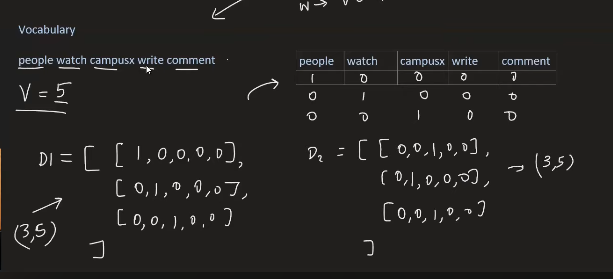 W → V
Vocabulary
people watch campusx write comment
V = 5
people watch campusx write comment
1 0 0 0 0
0 1 0 0 0
0 0 1 0 0
D1 = [ [ 1, 0, 0, 0, 0 ],
[ 0, 1, 0, 0, 0 ],
[ 0, 0, 1, 0, 0 ]
]
(3,5)
D2 = [ [ 0, 0, 1, 0, 0 ],
[ 0, 1, 0, 0, 0 ],
[ 0, 0, 1, 0, 0 ]
]
→ (3,5)